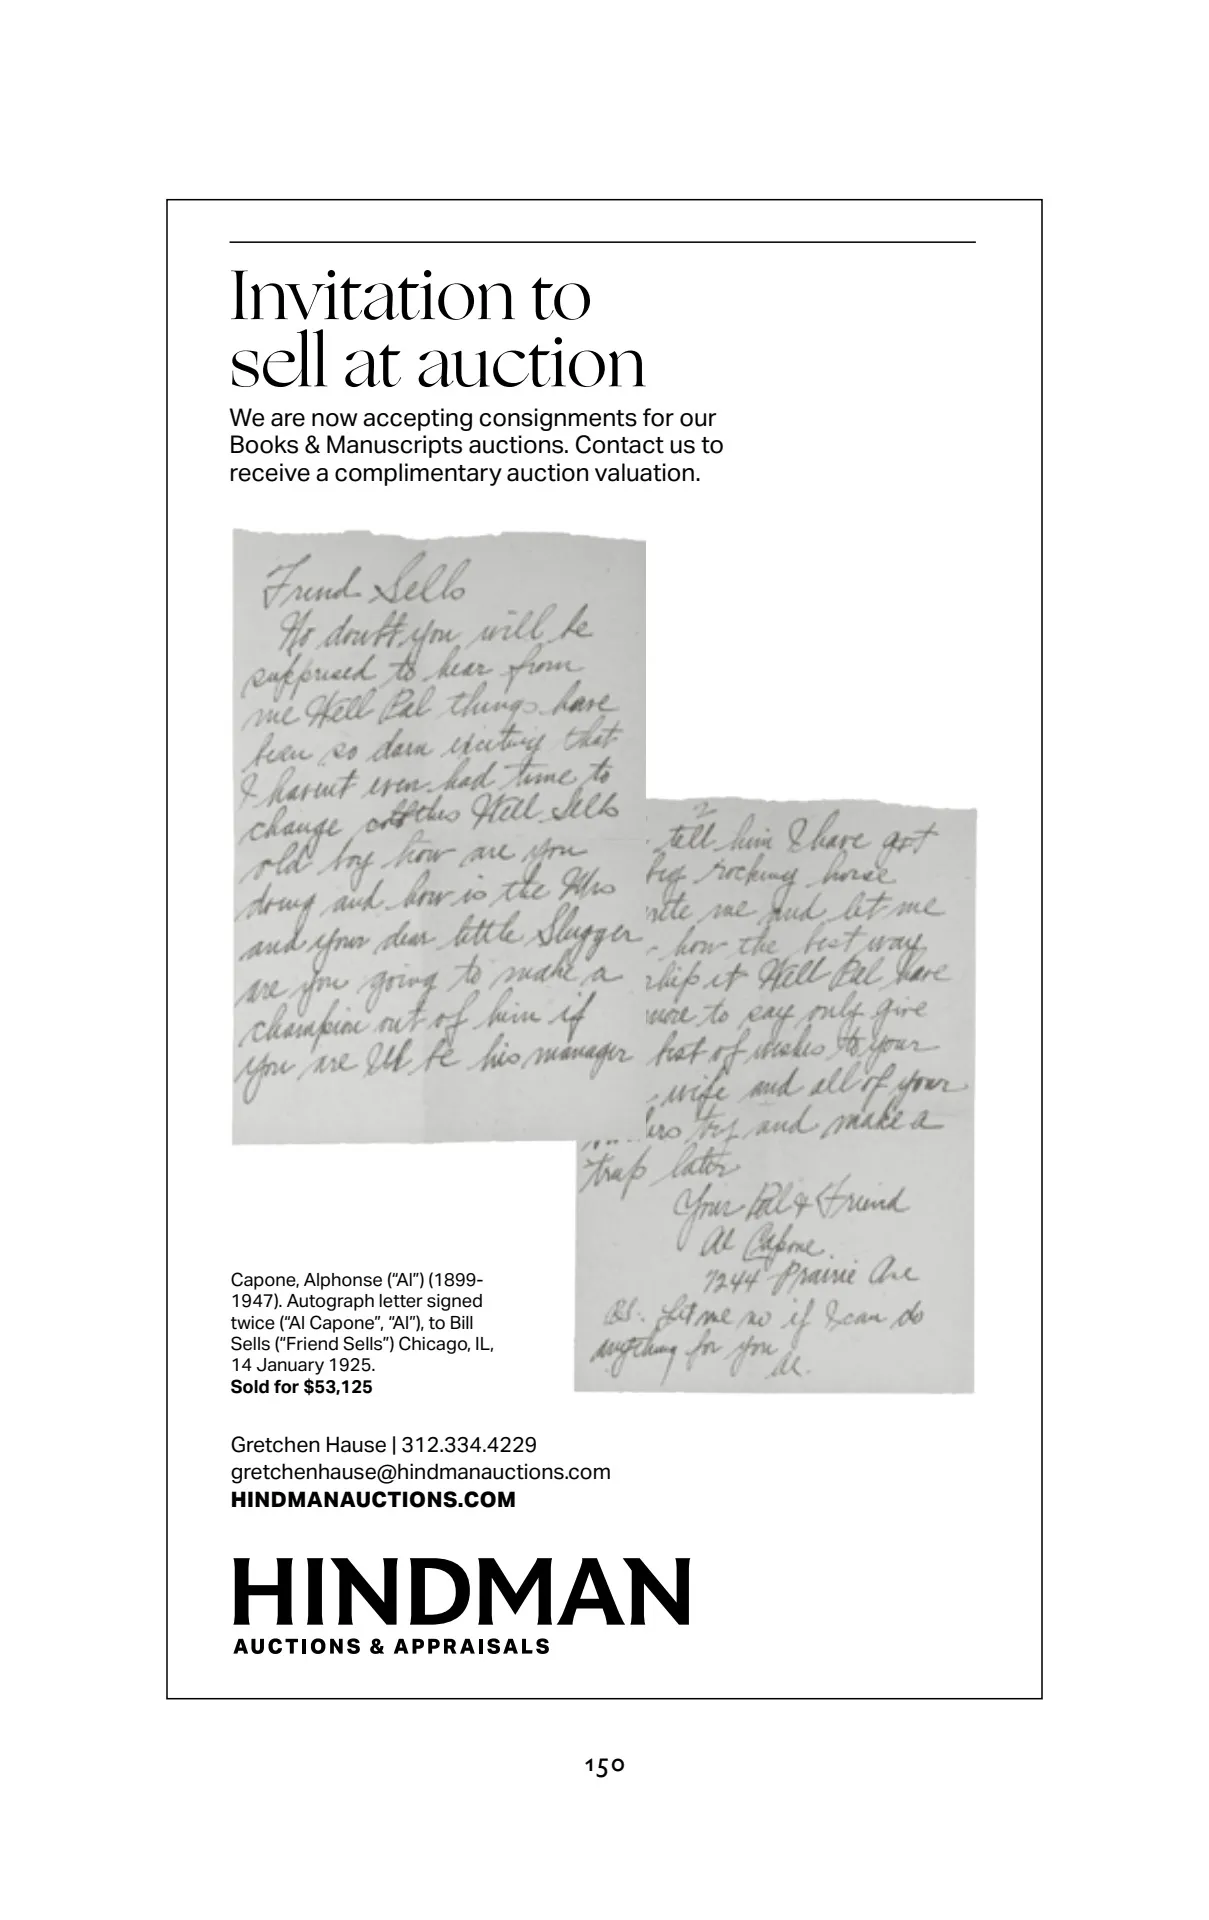 Invitation to
sell at auction
We are now accepting consignments for our
Books & Manuscripts auctions. Contact us to
receive a complimentary auction valuation.
Friend Sells
No doubt you will be
supprised to hear from
me Well Pal things have
been so darn exciting that
I havent even had time to
change Well Sells
old boy how are you
doing and how is the Mrs
and your dear little Slugger
are you going to make a
champion out of him if
you are Ill be his manager
2
tell him I have got
big rocking horse
me and let me
how the best way
ship it Well Pal have
more to say only give
best of wishes to your
wife and all of your
try and make a
trap later
Your Pal & Friend
Al Capone
7244 Prairie Ave
P.S. Let me no if I can do
anything for you
Al.
Capone, Alphonse (“Al”) (1899-
1947). Autograph letter signed
twice (“Al Capone”, “Al”), to Bill
Sells (“Friend Sells”) Chicago, IL,
14 January 1925.
Sold for $53,125
Gretchen Hause | 312.334.4229
gretchenhause@hindmanauctions.com
HINDMANAUCTIONS.COM
HINDMAN
AUCTIONS & APPRAISALS
150